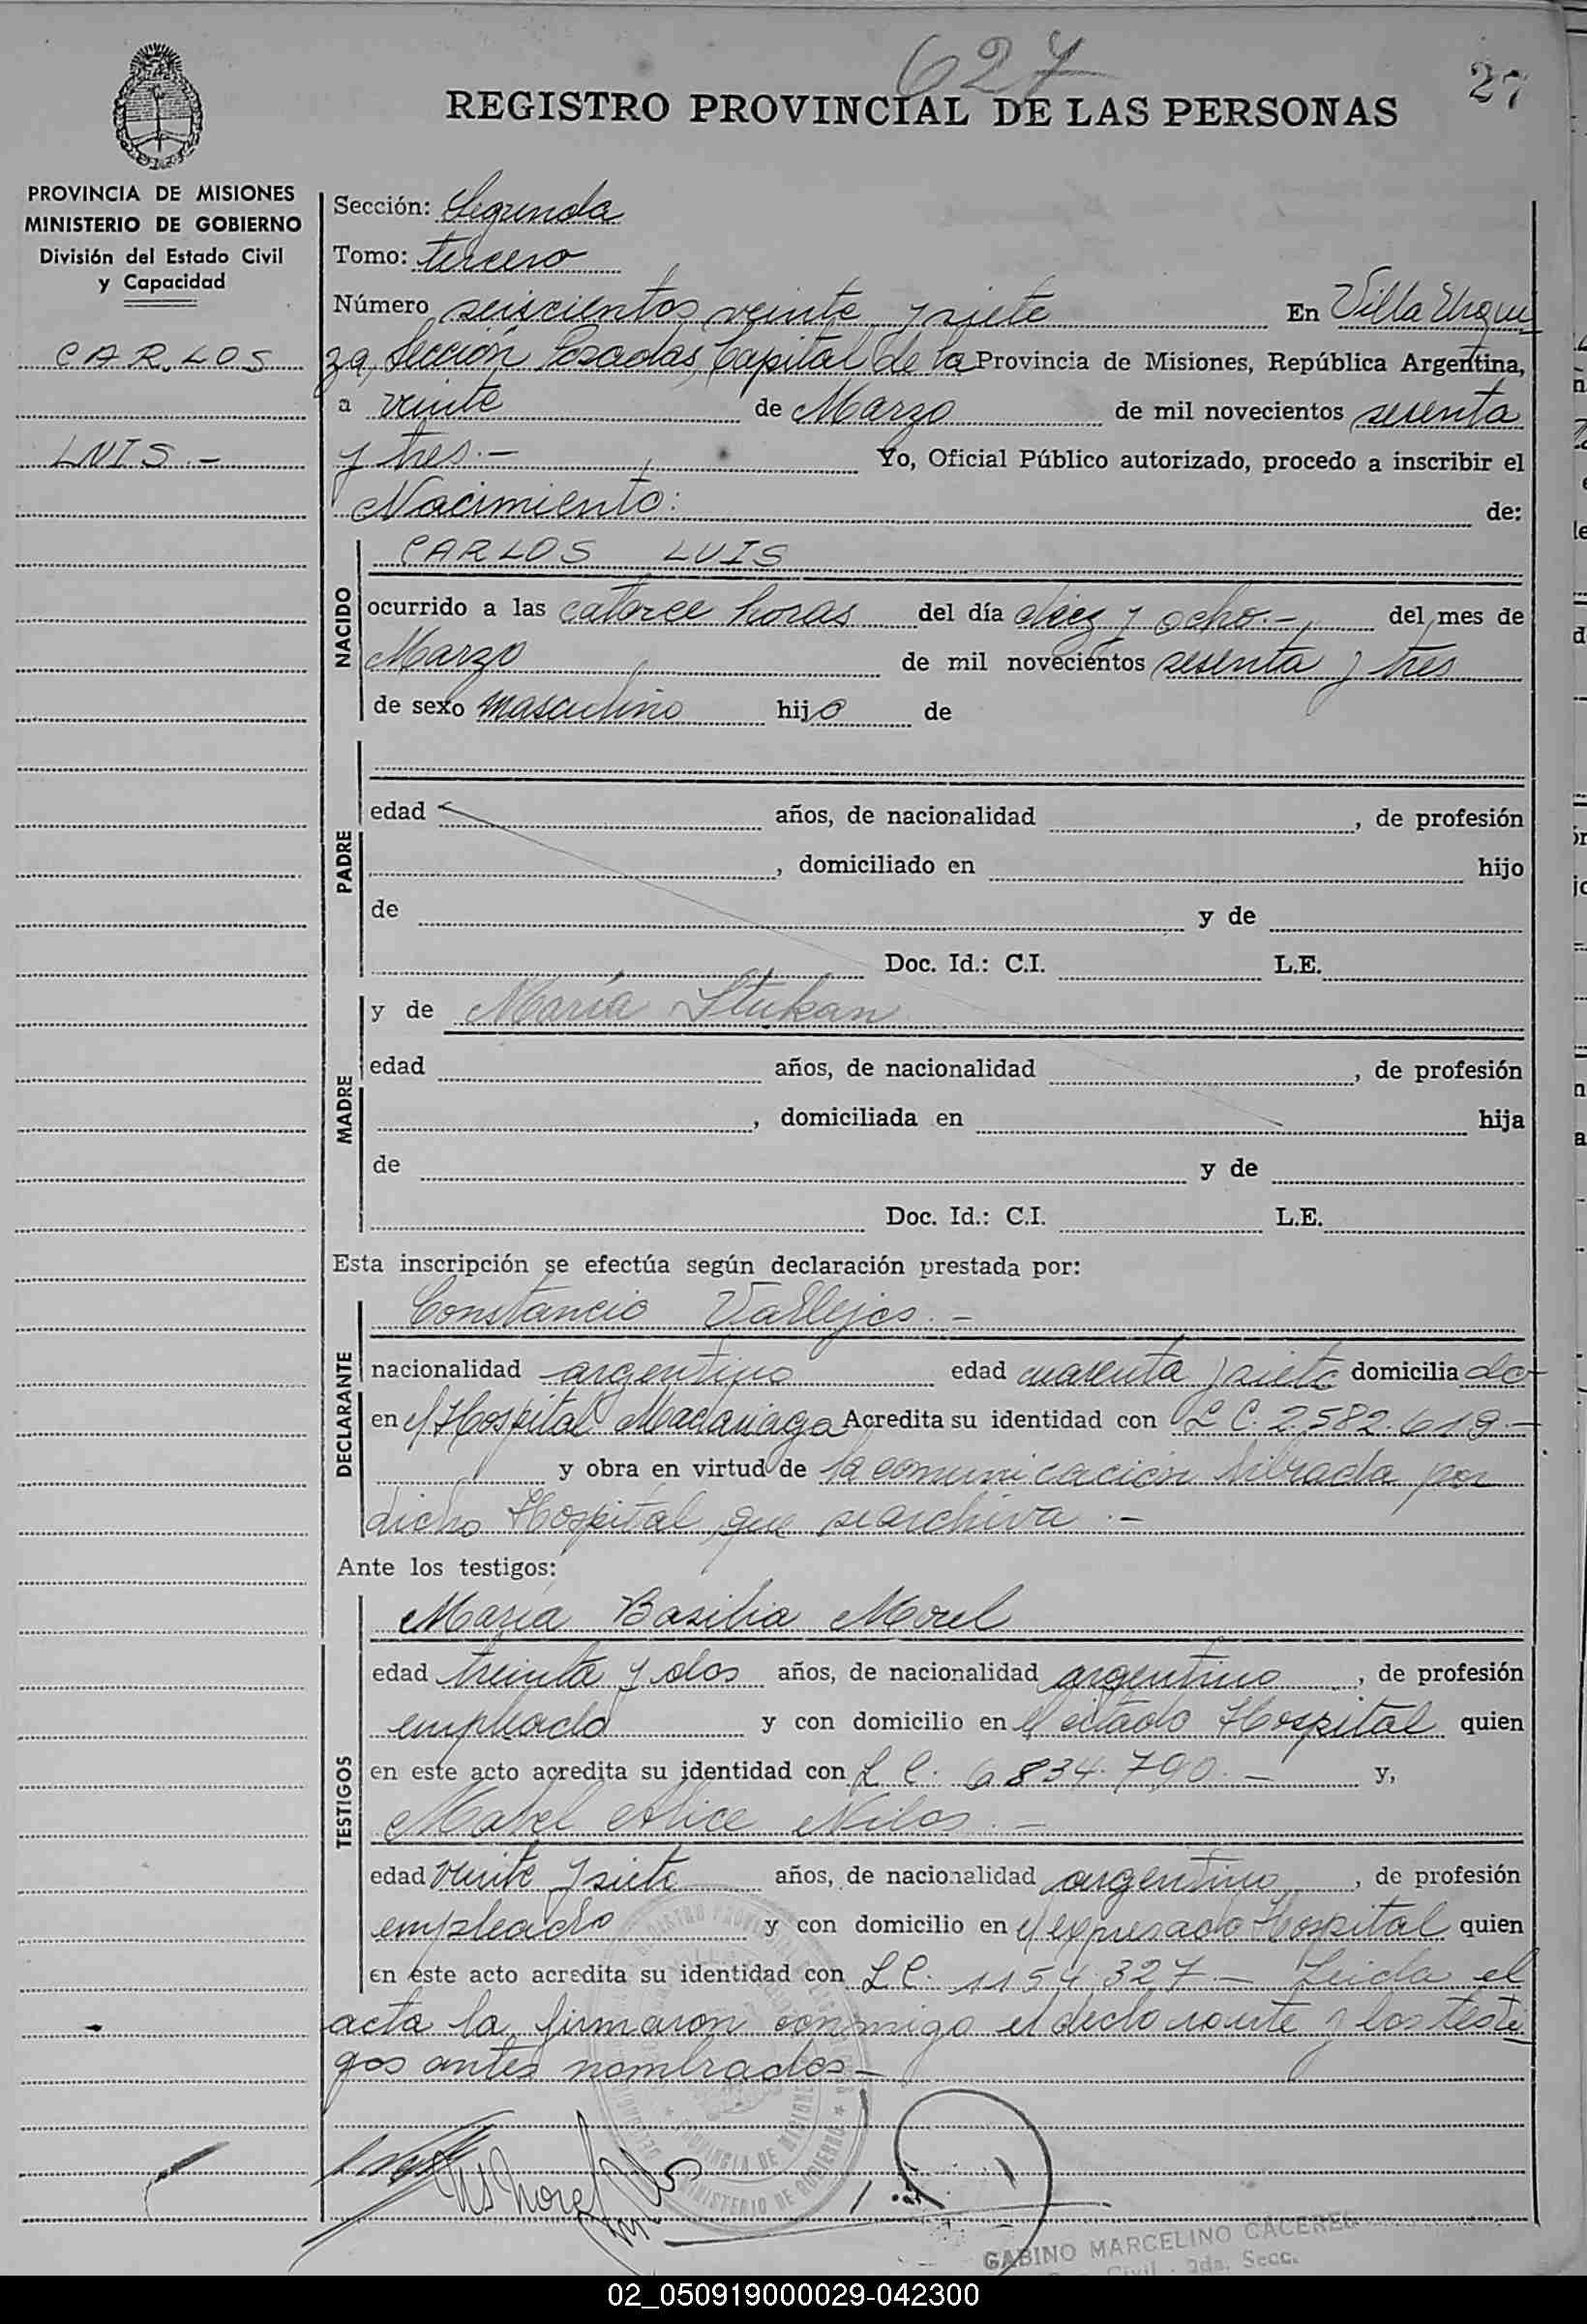 627
27
REGISTRO PROVINCIAL DE LAS PERSONAS
PROVINCIA DE MISIONES
MINISTERIO DE GOBIERNO
División del Estado Civil
y Capacidad
CARLOS
LUIS.-
Sección: Segunda
Tomo: tercero
Número seiscientos veinte y siete En Villa Urqui
za, Sección Posadas, Capital de la Provincia de Misiones, República Argentina,
a veinte de Marzo de mil novecientos sesenta
y tres.- Yo, Oficial Público autorizado, procedo a inscribir el
Nacimiento: de:
NACIDO
CARLOS LUIS
ocurrido a las catorce horas del día diez y ocho.- del mes de
Marzo de mil novecientos sesenta y tres
de sexo masculino hijo de
PADRE
edad años, de nacionalidad , de profesión
, domiciliado en hijo
de y de
Doc. Id.: C.I. L.E.
MADRE
y de María Stukan
edad años, de nacionalidad , de profesión
, domiciliada en hija
de y de
Doc. Id.: C.I. L.E.
Esta inscripción se efectúa según declaración prestada por:
DECLARANTE
Constancio Vallejos.-
nacionalidad argentino edad cuarenta y siete domicilia do
en el Hospital Madariaga Acredita su identidad con L C. 2.582.619.-
y obra en virtud de la comunicación librada por
dicho Hospital que se archiva.-
Ante los testigos:
TESTIGOS
María Basilia Morel
edad treinta y dos años, de nacionalidad argentino, de profesión
empleado y con domicilio en el citado Hospital quien
en este acto acredita su identidad con L C. 6834.790.- y,
Mabel Alice Nilos.-
edad veinte y siete años, de nacionalidad argentino, de profesión
empleado y con domicilio en el expresado Hospital quien
en este acto acredita su identidad con L C. 1154.327.- Leida el
acta la firmaron conmigo el declarante y los testi
gos antes nombrados-
GABINO MARCELINO CACERES
Civil - 2da. Secc.
02_050919000029-042300